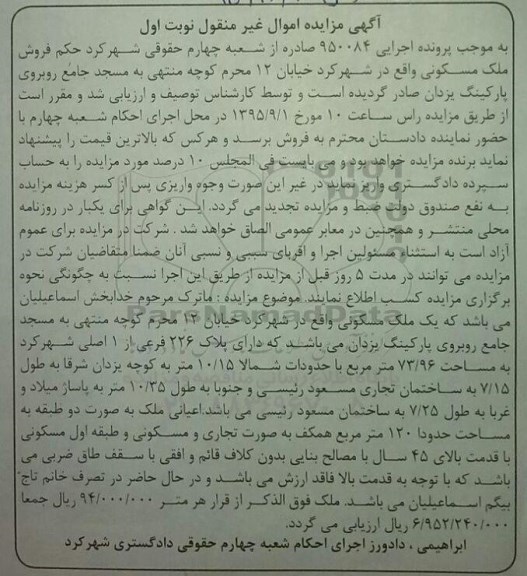 آگهی مزایده اموال غیر منقول نوبت اول
به موجب پرونده اجرایی ۹۵۰۰۸۴ صادره از شعبه چهارم حقوقی شهرکرد حکم فروش
ملک مسکونی واقع در شهرکرد خیابان ۱۲ محرم کوچه منتهی به مسجد جامع روبروی
پارکینگ یزدان صادر گردیده است و توسط کارشناس توصیف و ارزیابی شد و مقرر است
از طریق مزایده راس ساعت ۱۰ مورخ ۱۳۹۵/۹/۱ در محل اجرای احکام شعبه چهارم با
حضور نماینده دادستان محترم به فروش برسد و هرکس که بالاترین قیمت را پیشنهاد
نماید برنده مزایده خواهد بود و می بایست فی المجلس ۱۰ درصد مورد مزایده را به حساب
سپرده دادگستری واریز نماید در غیر این صورت وجوه واریزی پس از کسر هزینه مزایده
به نفع صندوق دولت ضبط و مزایده تجدید می گردد. این گواهی برای یکبار در روزنامه
محلی منتشر و همچنین در معابر عمومی الصاق خواهد شد . شرکت در مزایده برای عموم
آزاد است به استثناء مسئولین اجرا و اقربای سببی و نسبی آنان ضمنا متقاضیان شرکت در
مزایده می توانند در مدت ۵ روز قبل از مزایده از طریق این اجرا نسبت به چگونگی نحوه
برگزاری مزایده کسب اطلاع نمایند. موضوع مزایده : ماترک مرحوم خدابخش اسماعیلیان
می باشد که یک ملک مسکونی واقع در شهرکرد خیابان ۱۲ محرم کوچه منتهی به مسجد
جامع روبروی پارکینگ یزدان می باشد که دارای پلاک ۲۲۶ فرعی از ۱ اصلی شهرکرد
به مساحت ۷۳/۹۶ متر مربع با حدودات شمالا ۱۰/۱۵ متر به کوچه یزدان شرقا به طول
۷/۱۵ به ساختمان تجاری مسعود رئیسی و جنوبا به طول ۱۰/۳۵ متر به پاساژ میلاد و
غربا به طول ۷/۲۵ به ساختمان مسعود رئیسی می باشد.اعیانی ملک به صورت دو طبقه به
مساحت حدودا ۱۲۰ متر مربع همکف به صورت تجاری و مسکونی و طبقه اول مسکونی
با قدمت بالای ۴۵ سال با مصالح بنایی بدون کلاف قائم و افقی با سقف طاق ضربی می
باشد که با توجه به قدمت بالا فاقد ارزش می باشد و در حال حاضر در تصرف خانم تاج
بیگم اسماعیلیان می باشد. ملک فوق الذکر از قرار هر متر ۹۴/۰۰۰/۰۰۰ ریال جمعا
۶/۹۵۲/۲۴۰/۰۰۰ ریال ارزیابی می گردد.
ابراهیمی ، دادورز اجرای احکام شعبه چهارم حقوقی دادگستری شهرکرد
ParsNamadData